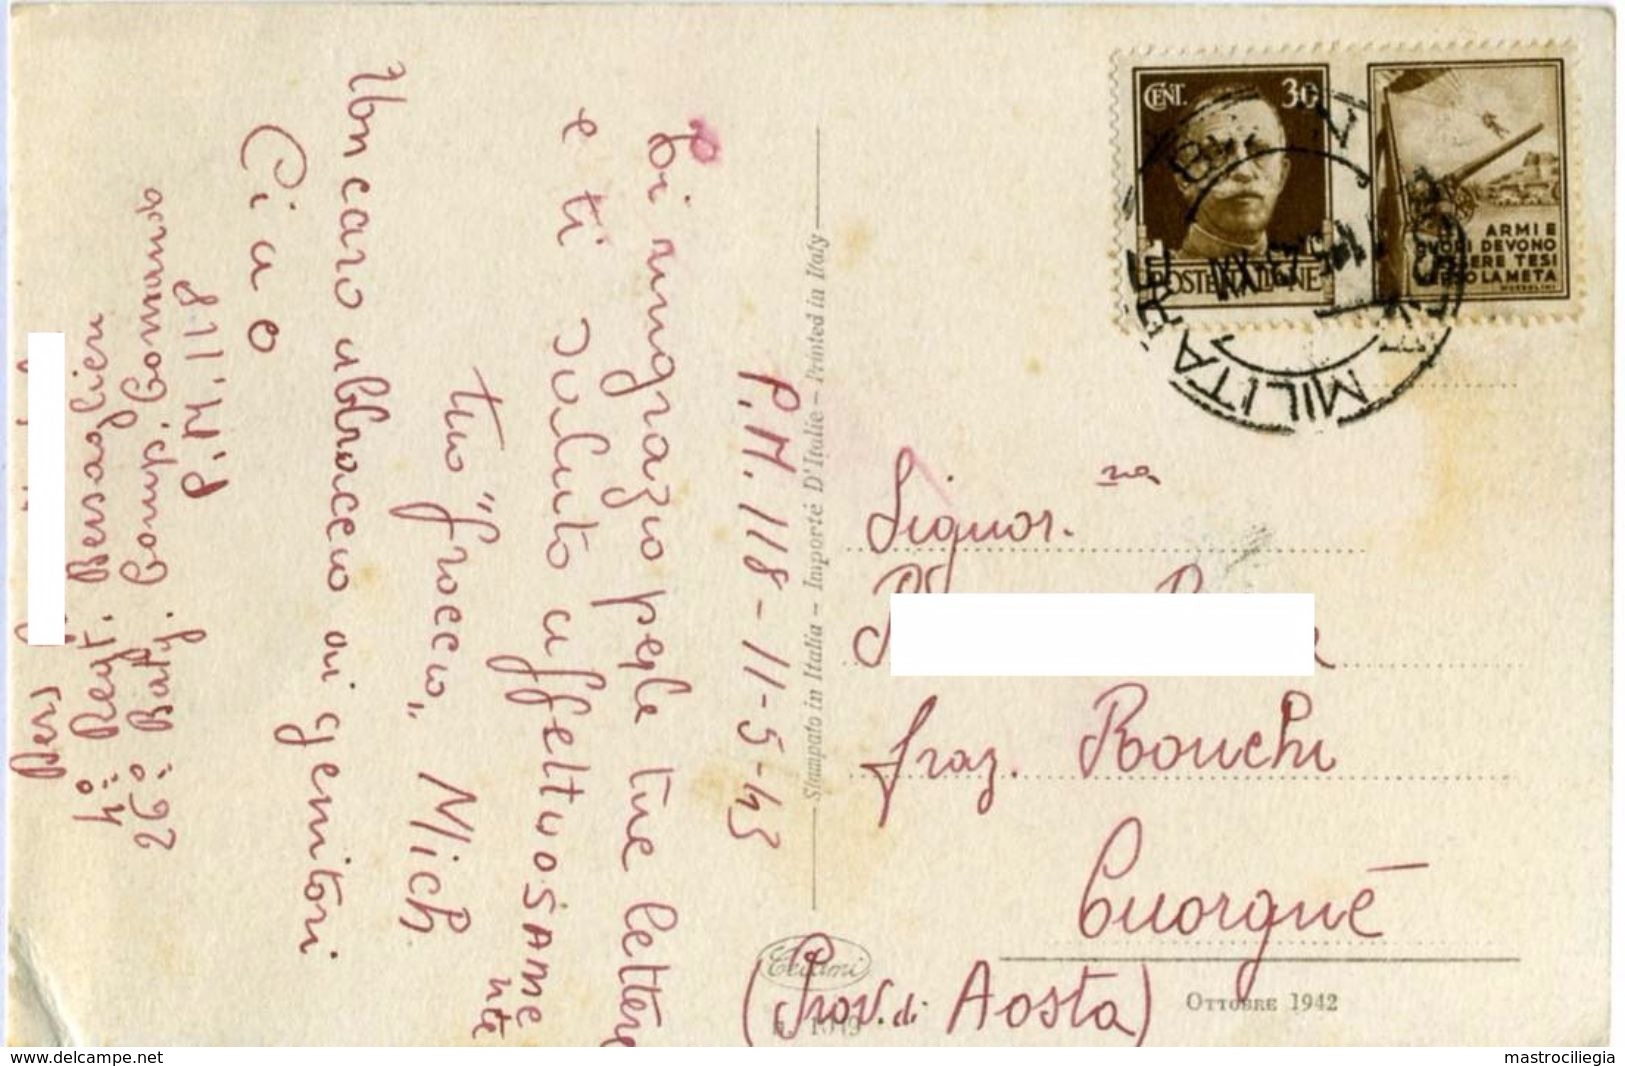 P.M. 118 - 11-5-43
Ti ringrazio per le tue lettere
e ti saluto affettuosame
nte
tuo "froccio" Mich
Un caro abbraccio ai genitori
Ciao
4° Regt. Bersaglieri
26° Batg. Comp. Comando
P.M. 118
Stampato in Italia - Importé D'Italie - Printed in Italy
CENT. 30
POSTE ITALIANE
ARMI E
CUORI DEVONO
ESSERE TESI
VERSO LA META
MUSSOLINI
MILITARE
Signor.na
fraz. Ronchi
Cuorgnè
(Prov. di Aosta)
OTTOBRE 1942
www.delcampe.net
mastrociliegia